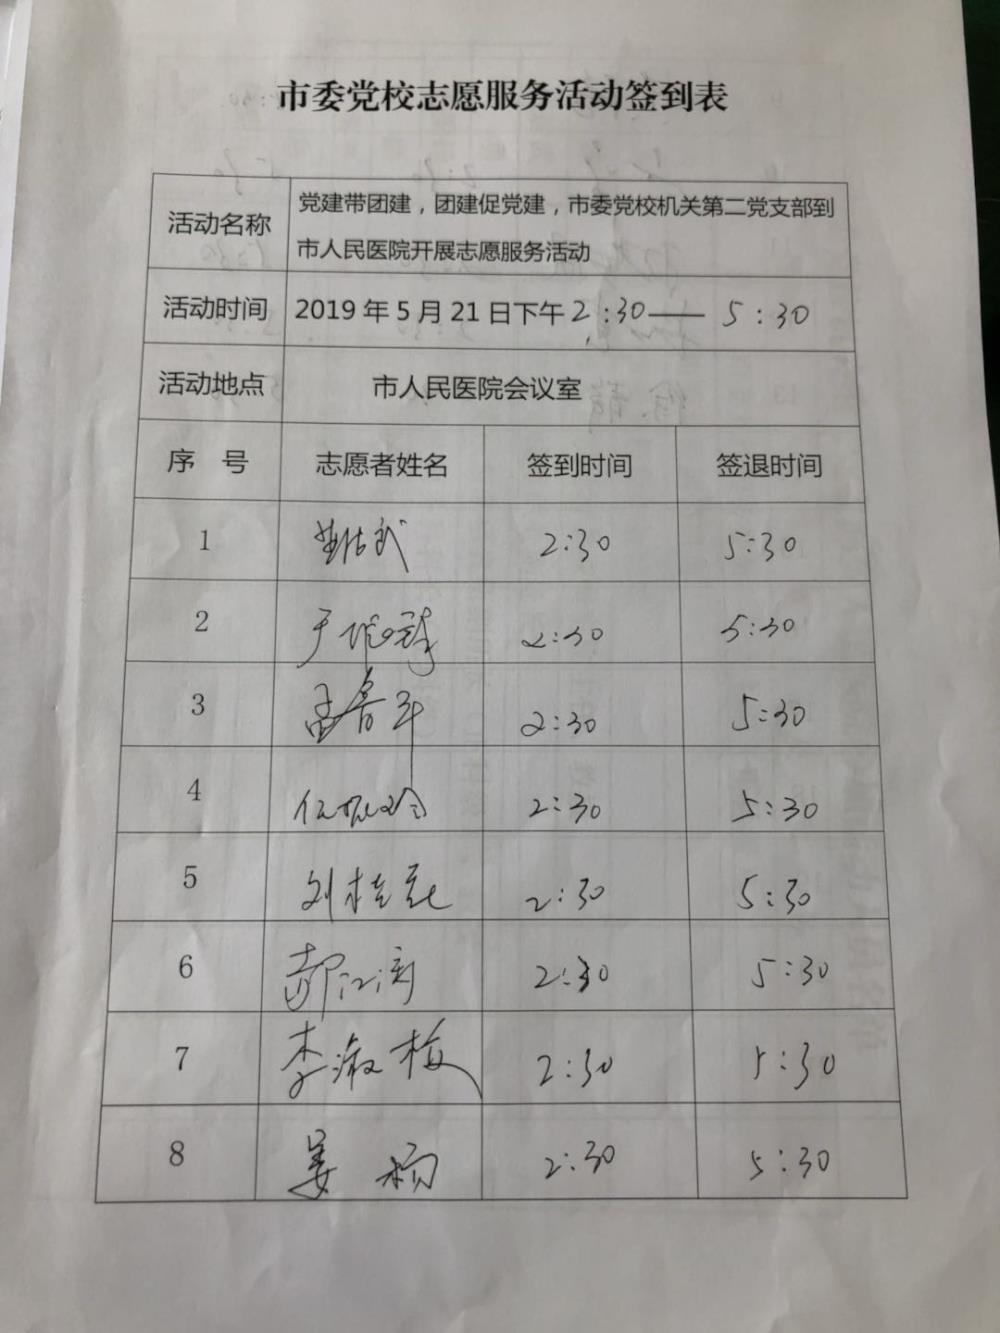 市委党校志愿服务活动签到表
活动名称 党建带团建，团建促党建，市委党校机关第二党支部到
市人民医院开展志愿服务活动
活动时间 2019年5月21日下午2:30—— 5:30
活动地点 市人民医院会议室
序 号 志愿者姓名 签到时间 签退时间
1 2:30 5:30
2 2:30 5:30
3 2:30 5:30
4 2:30 5:30
5 刘桂花 2:30 5:30
6 2:30 5:30
7 李淑梅 2:30 5:30
8 姜 杨 2:30 5:30